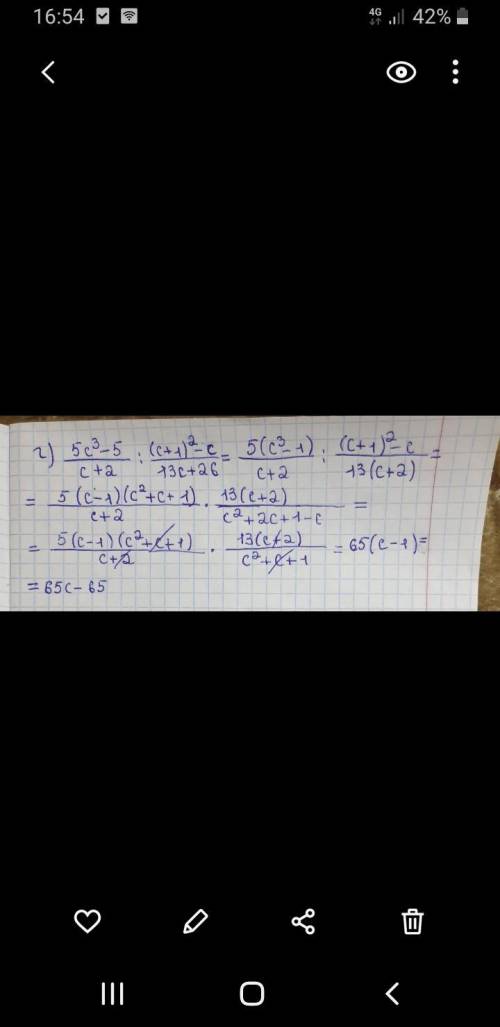 16:54 4G 42%
г) (5c³-5)/(c+2) : ((c+1)²-c)/(13c+26) = (5(c³-1))/(c+2) : ((c+1)²-c)/(13(c+2)) =
= (5(c-1)(c²+c+1))/(c+2) · (13(c+2))/(c²+2c+1-c) =
= (5(c-1)(c²+c+1))/(c+2) · (13(c+2))/(c²+c+1) = 65(c-1) =
= 65c-65